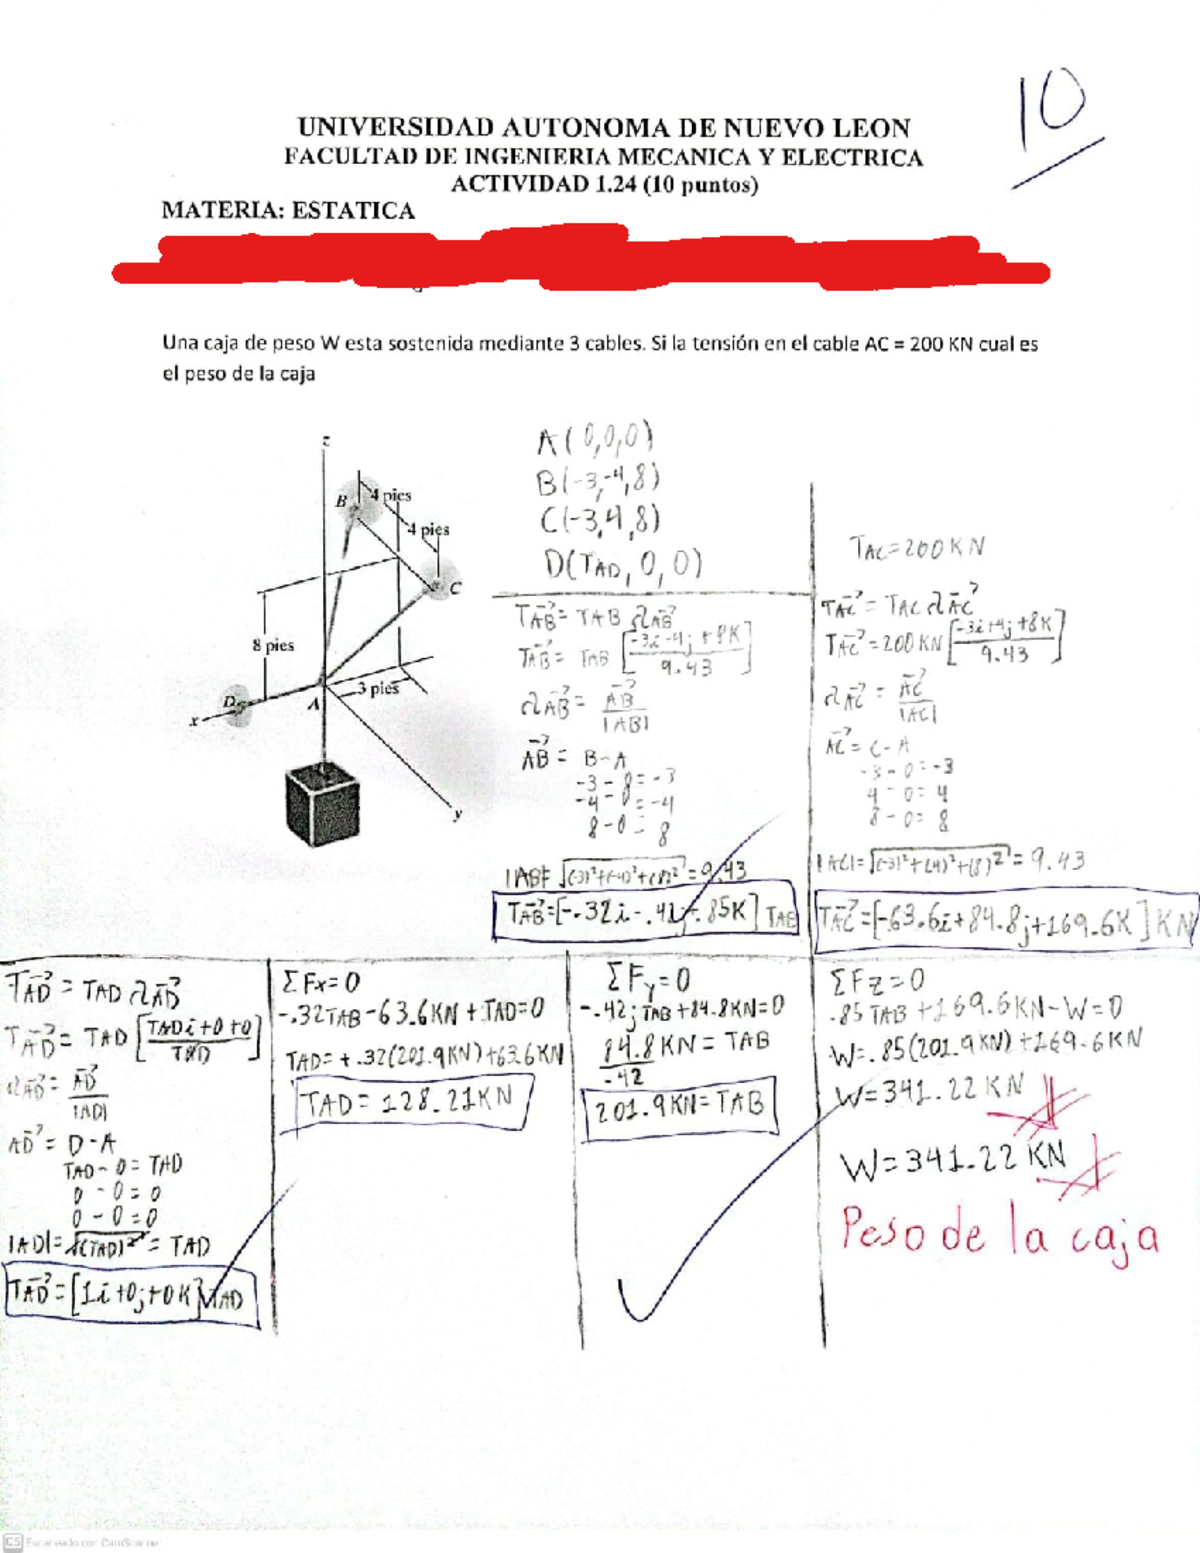 10
UNIVERSIDAD AUTONOMA DE NUEVO LEON
FACULTAD DE INGENIERIA MECANICA Y ELECTRICA
ACTIVIDAD 1.24 (10 puntos)
MATERIA: ESTATICA
Una caja de peso W esta sostenida mediante 3 cables. Si la tensión en el cable AC = 200 KN cual es
el peso de la caja
z
B
4 pies
4 pies
C
8 pies
3 pies
D
A
x
y
A(0,0,0)
B(-3,-4,8)
C(-3,4,8)
D(TAD, 0, 0)
TAB→ = TAB λAB→
TAB→ = TAB [-3i-4j+8K / 9.43]
λAB→ = AB→ / |AB|
AB→ = B-A
-3-0=-3
-4-0=-4
8-0= 8
|AB|= √(-3)²+(-4)²+(8)² = 9.43
TAB→=[-.32i-.42j+.85K] TAB
TAC=200KN
TAC→ = TAC λAC→
TAC→ = 200KN [-3i+4j+8K / 9.43]
λAC→ = AC→ / |AC|
AC→ = C-A
-3-0=-3
4-0= 4
8-0= 8
|AC|=√(-3)²+(4)²+(8)² = 9.43
TAC→=[-63.6i+84.8j+169.6K] KN
TAD→ = TAD λAD→
TAD→ = TAD [TADi+0+0 / TAD]
λAD→ = AD→ / |AD|
AD→ = D-A
TAD-0=TAD
0-0=0
0-0=0
|AD|=√(TAD)² = TAD
TAD→=[1i+0j+0K] TAD
ΣFx=0
-.32TAB-63.6KN+TAD=0
TAD=+.32(201.9KN)+63.6KN
TAD=128.21KN
ΣFy=0
-.42jTAB+84.8KN=0
84.8KN / -.42 = TAB
201.9KN=TAB
ΣFz=0
.85TAB+169.6KN-W=0
W=.85(201.9KN)+169.6KN
W=341.22KN
W=341.22KN
Peso de la caja
CS Escaneado con CamScanner